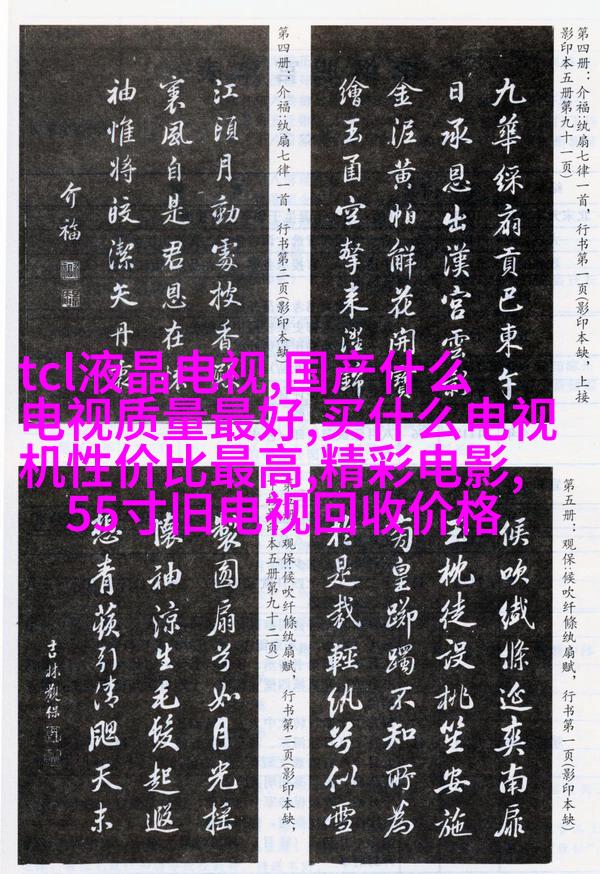 第四册：介福:纨扇七律一首，行书第一页(影印本缺，上接
影印本五册第九十一页)
九華綵扇貢巴東午
日承恩出漢宮雲彩
金泥黄帕解花開寶
繪玉函空擎来濯錦
第四册：介福:纨扇七律一首，行书第二页(影印本缺)
江頭月動處披香殿
裏風自是君恩在
袖惟将皎潔矢丹衷
介福
tcl液晶电视,国产什么
电视质量最好,买什么电视
机性价比最高,精彩电影,
55寸旧电视回收价格
第五册：观保:候吹纤絛纨扇赋，行书第一页(影印本缺)
候吹纎絛延爽南扉
玉枕徒设桃笙安施
皇躑躅不知所為
於是裁輕紈兮似雪
观保:候吹纤絛纨扇赋，行书第二页(影印本缺，
印本五册第九十二页)
製圓扇兮如月光摇
懷袖涼生毛髮起遐
想青蘋引清颸天末
吉林觀保